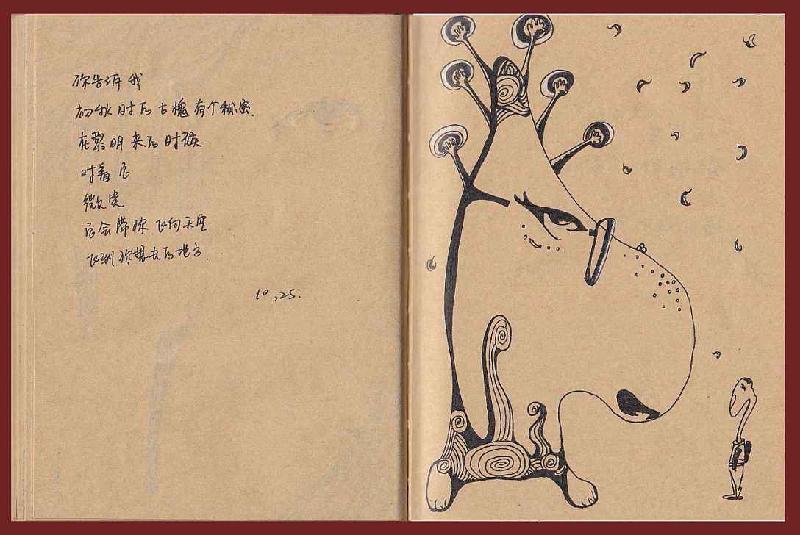 你告诉我
初秋时的古槐有个秘密.
在黎明来的时候
对着它
微笑
它会带你飞向天空
飞到你想去的地方
10.25.